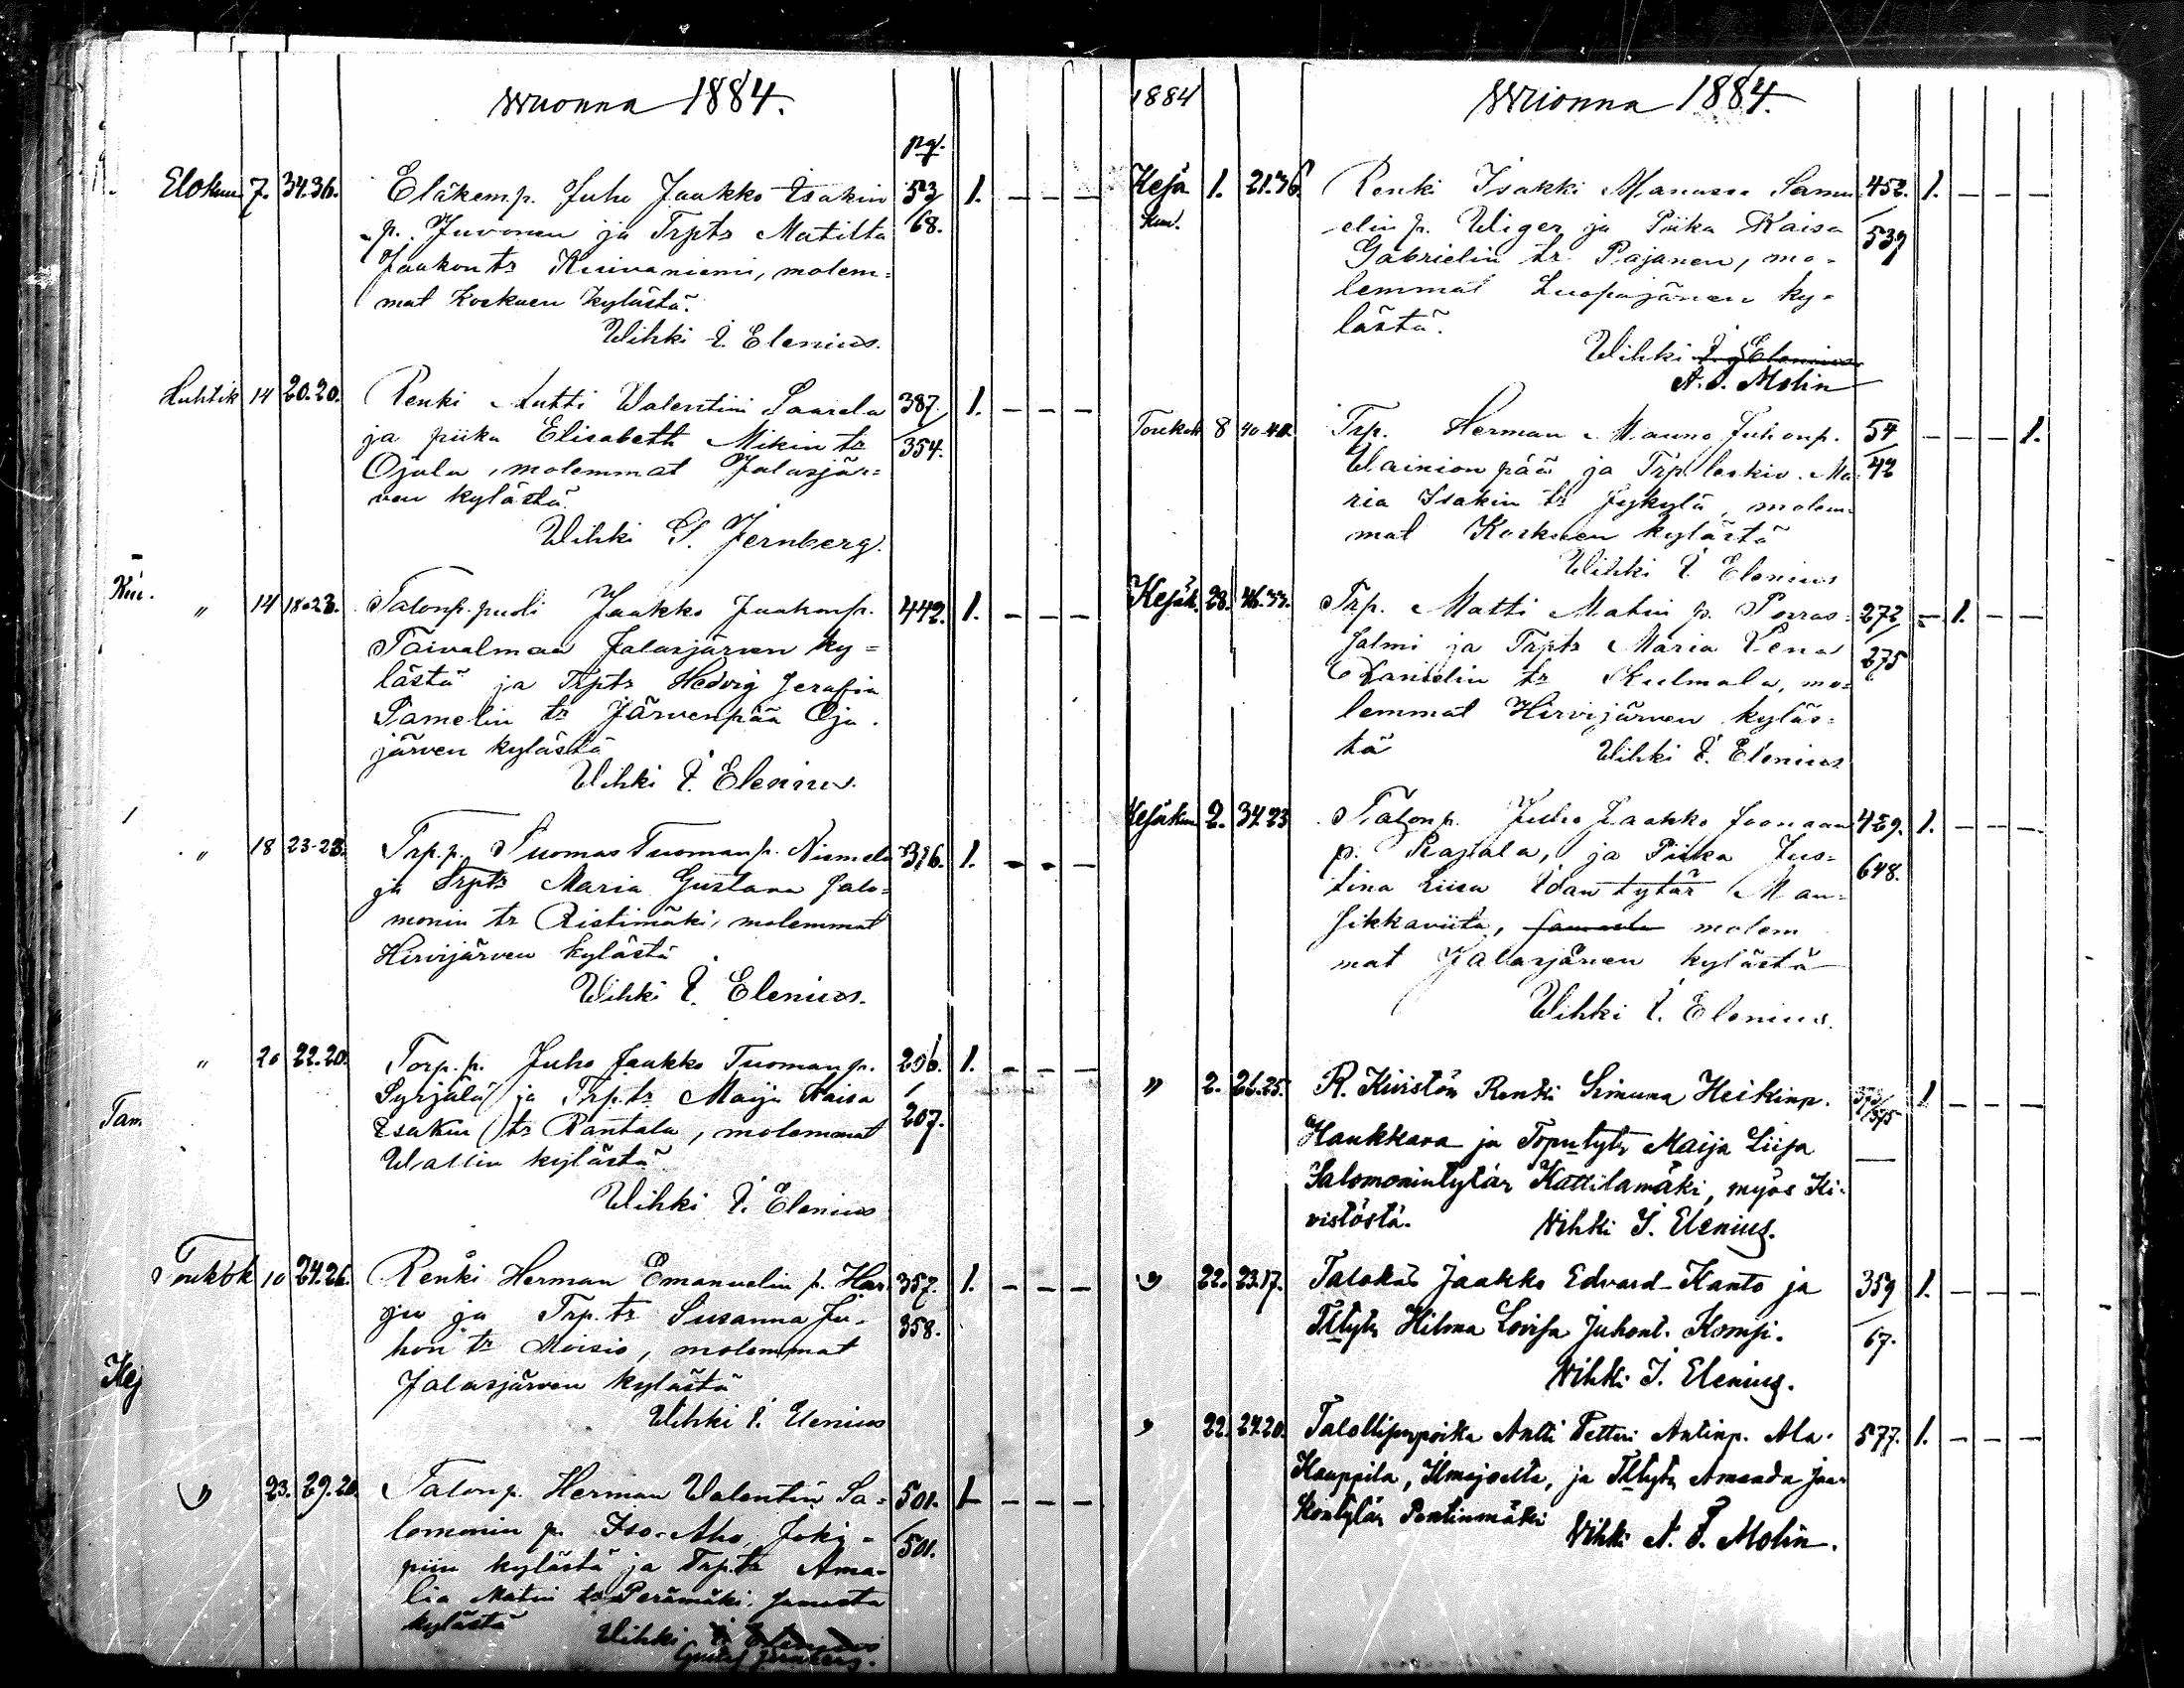 Wuonna 1884.
pg.
Elokuu 7. 34.36. Eläkem.p. Juho Jaakko Isakin 53/ 1. - - -
p. Juvonen ja Trptr Matilta 68.
Jaakon tr Kuivaniemi, molem=
mat Koskuen kylästä.
Wihki I. Elenius.
Huhtik 14 20.20. Renki Antti Walentini Saarela 387./ 1. - - -
ja piika Elisabeth Mikin tr 354.
Ojala, molemmat Jalasjär=
ven kylästä.
Wihki G. Jernberg.
" 14 18.23. Talonp.puoli Jaakko Jaakonp. 442. 1. - - -
Taivalmaa Jalasjärven ky=
lästä ja Trptr Hedvig Serafia
Samelin tr Järvenpää Oja.
järven kylästä
Wihki I. Elenius.
" 18 23-23. Trp.p. Tuomas Tuomanp. Niemelä 316. 1. - - -
ja Trptr Maria Gustava Salo=
monin tr Ristimäki, molemmat
Hirvijärven kylästä
Wihki I. Elenius.
" 20 22.20. Torp.p. Juho Jaakko Tuomanp. 206./ 1. - - -
Syrjälä ja Trp.tr Maija Kaisa 207.
Isakin tr Rantala, molemmat
Wallin kylästä
Wihki I. Elenius
Toukok 10 24.26. Renki Herman Emanuelin p. Har 357. 1. - - -
ju ja Trp.tr Susanna Ju= 358.
hon tr Moisio, molemmat
Jalasjärven kylästä
Wihki I. Elenius
" 23. 29.20. Talonp. Herman Walentin Sa= 501./ 1 - - -
lomonin p. Iso-Aho, Joki= 501.
piin kylästä ja Trp.tr Ama-
lia Matin tr Perämäki. samasta
kylästä Wihki I. Elenius
Gustaf Jernberg.
1884
Wuonna 1884.
Kesä 1. 21.36. Renki Isakki Manasse Samu 452./ 1. - - -
kuu. elin p. Wiger ja Piika Kaisa 539
Gabrielin tr. Pajanen, mo=
lemmat Luopajärven ky=
lästä.
Wihki I. Elenius
A. I. Molin
Toukok 8 40.40. Trp. Herman Manno Juhonp. 54/ - - - 1.
Wainionpää ja Trp. leskiv. Ma 42
ria Isakin tr Jykylä, molem=
mat Koskuen kylästä
Wihki I. Elenius
Kesäk. 28. Trp. Matti Matin p. Porras= 272/ - 1. - -
salmi ja Trptr Maria Lena 275
Danielin tr Kulmala, mo=
lemmat Hirvijärven kyläs=
tä Wihki I. Elenius
Kesäkuu 2. 34.23 Talonp. Juho Jaakko Joonaan 429. 1. - - -
p. Rajala, ja Piika Jus= 648.
tina Liisa Idan tytär Man=
sikkaviita, samasta molem
mat Jalasjärven kylästä
Wihki I. Elenius.
" 2. 26.25. R. Kivistön Renki Simuna Heikinp. 373/575 1 - - -
Haukkara ja Toputyts Maija Liisa
Salomonintytär Kattilamäki, myös Ki-
vistöstä. Vihki I. Elenius.
" 22. 23.17. Talokas Jaakko Edvard Kanto ja 359/ 1. - - -
Tltyts Hilma Lovisa Juhont. Kompi. 67.
Vihki I. Elenius.
" 22. 24.20. Talollisenpoika Antti Petteri Antinp. Ala- 577. 1. - - -
Kauppila, Ilmajoelta, ja Tltyts Amanda Jaa-
kontytär Pentinmäki
Vihki A. I. Molin.
Kui.
Tam
Kej